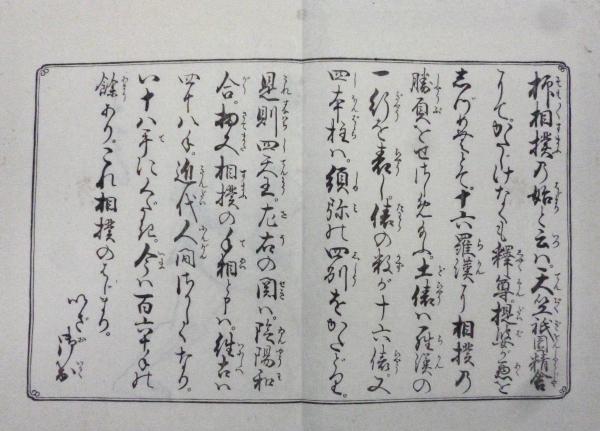 抑相撲乃始と云ハ天竺祇園精舎
にてかたじけなくも釋尊提婆が悪を
しづめんとて十六羅漢に相撲乃
勝負をせさしめ給ふ土俵ハ羅漢の
一行を表し俵の数が十六俵又
四本柱ハ須弥の四別をかたどり
是則四天王左右の関ハ陰陽和
合扨又相撲の手相と申ハ往古ハ
四十八手近代人間
八十八手にくだき今ハ百六十手の
餘あり これ相撲のはじまり